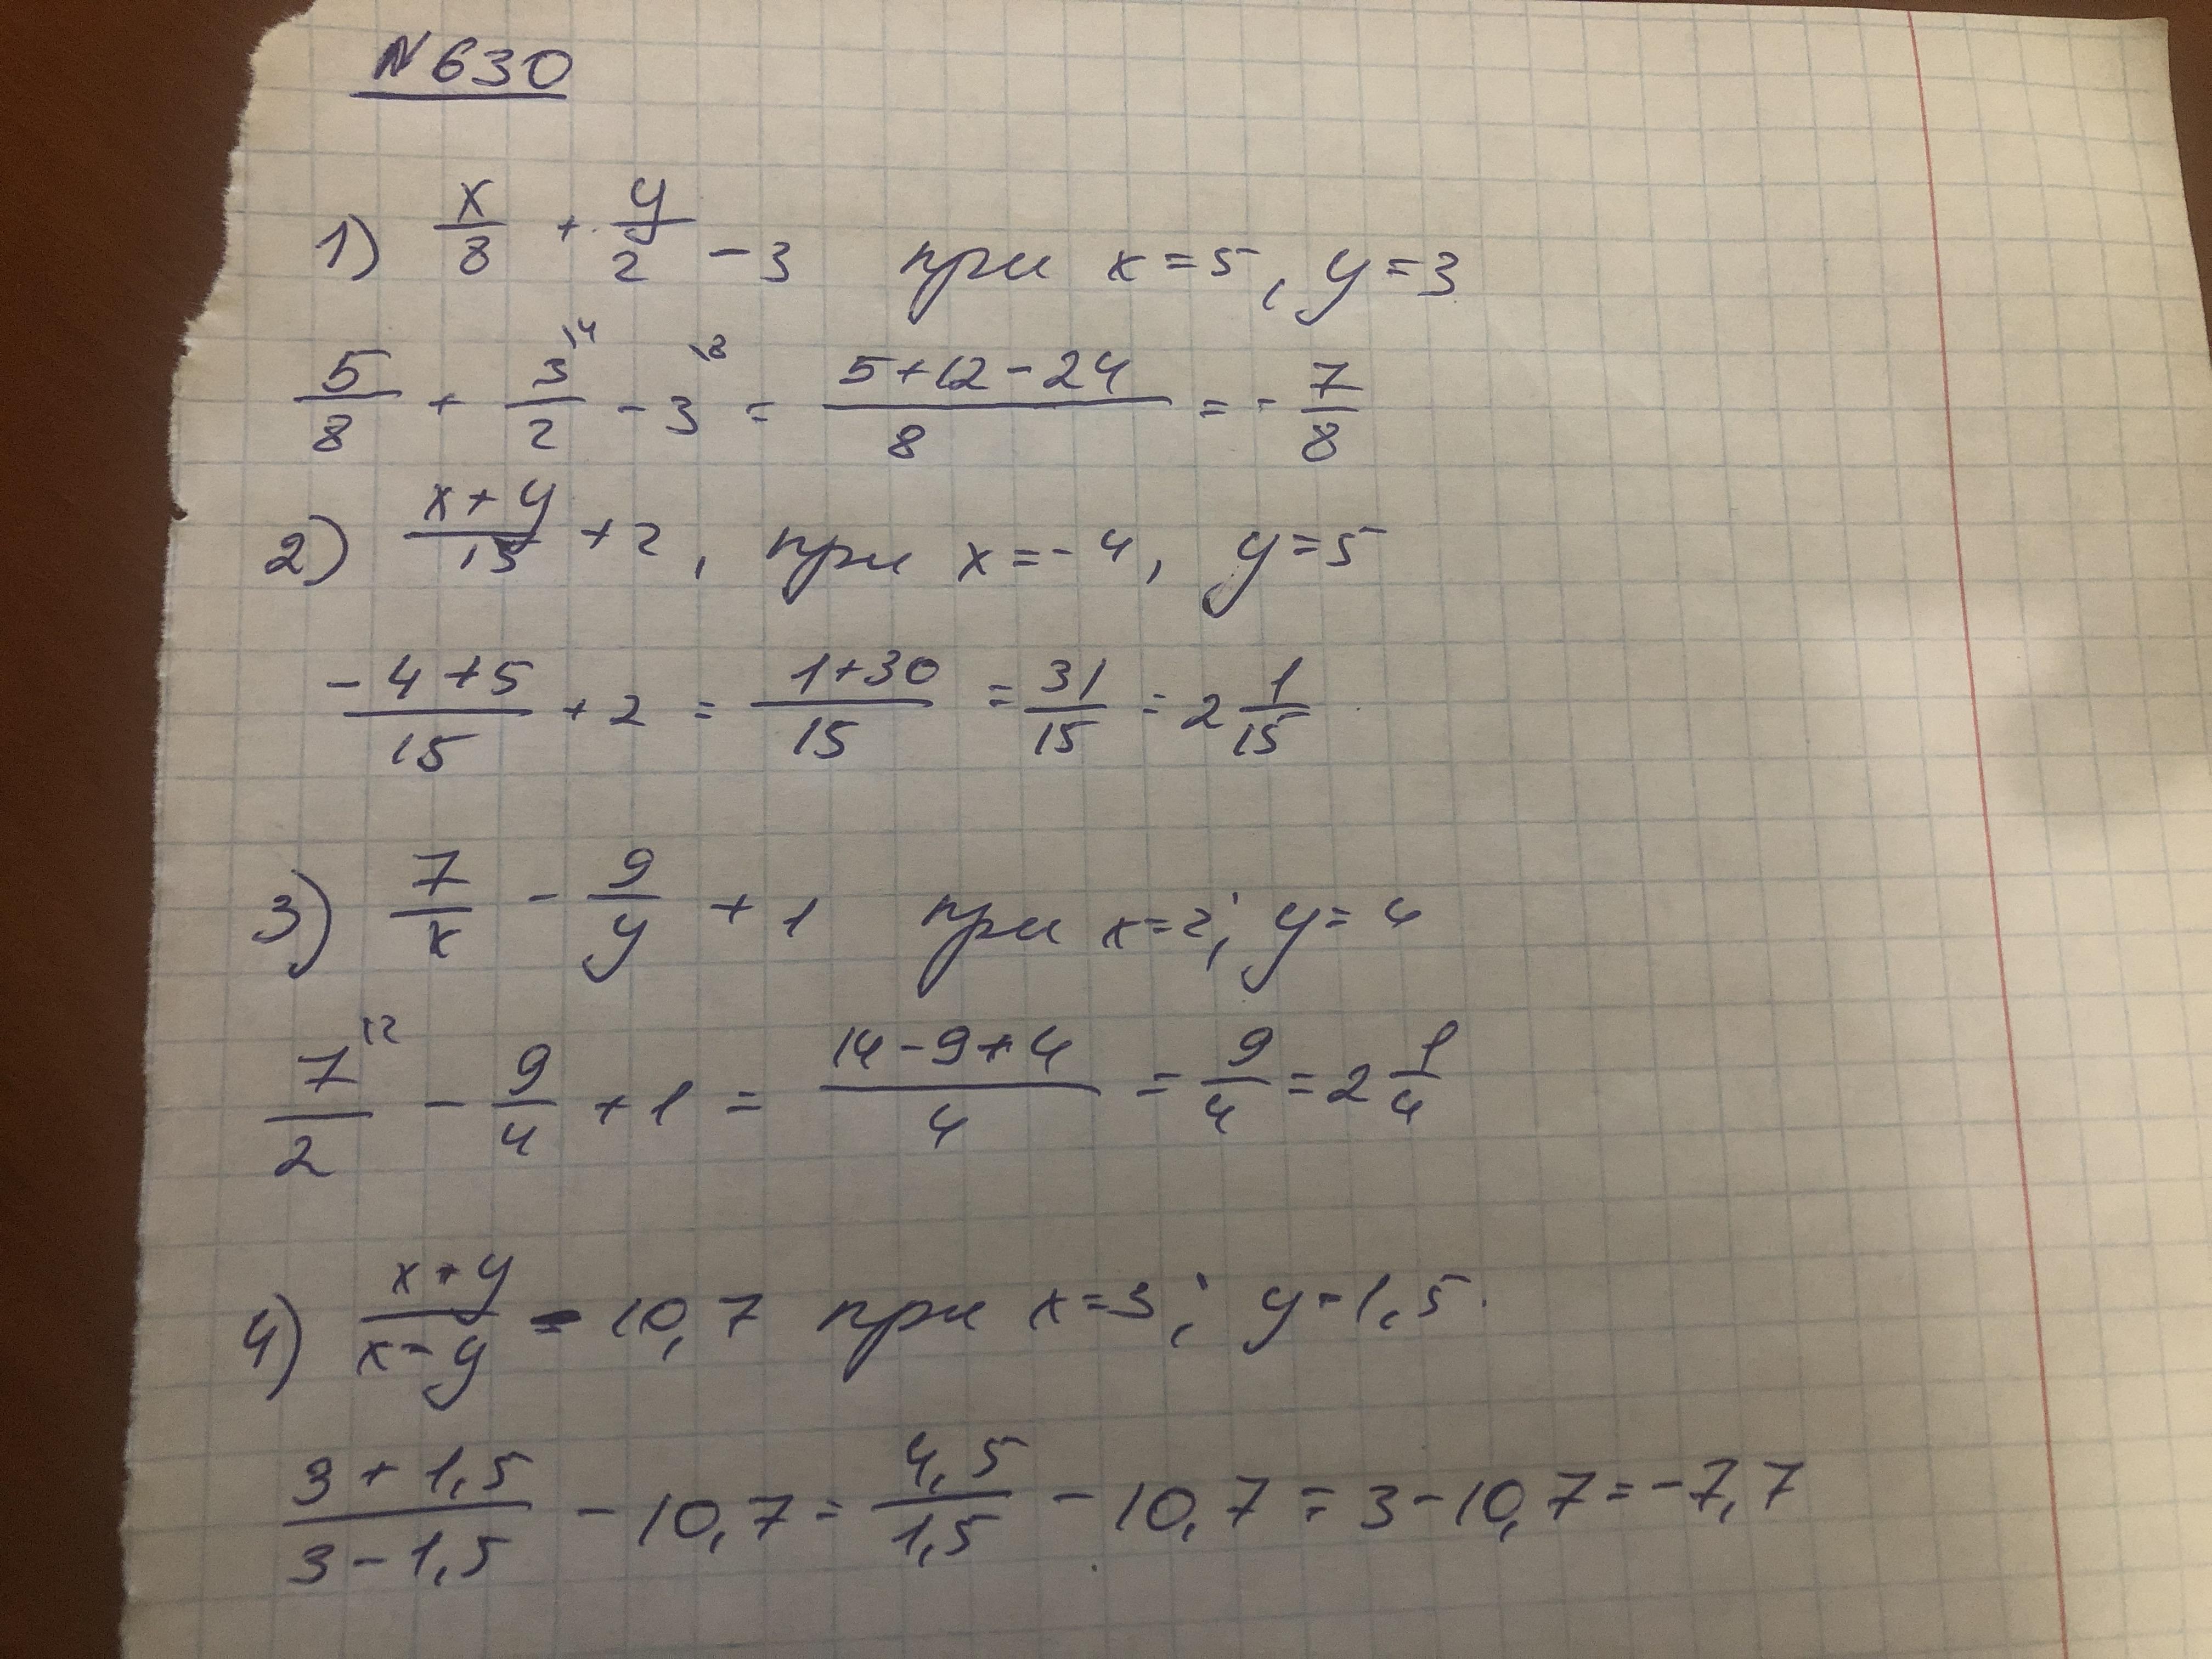 N 630
1) x/8 + y/2 - 3 при x = 5, y = 3
5/8 + 3\4/2 - 3\8 = (5+12-24)/8 = - 7/8
2) (x+y)/15 + 2, при x = -4, y = 5
(-4+5)/15 + 2 = (1+30)/15 = 31/15 = 2 1/15
3) 7/x - 9/y + 1 при x = 2; y = 4
7\2/2 - 9/4 + 1 = (14-9+4)/4 = 9/4 = 2 1/4
4) (x+y)/(x-y) - 10,7 при x = 3; y = 1,5.
(3+1,5)/(3-1,5) - 10,7 = 4,5/1,5 - 10,7 = 3 - 10,7 = -7,7